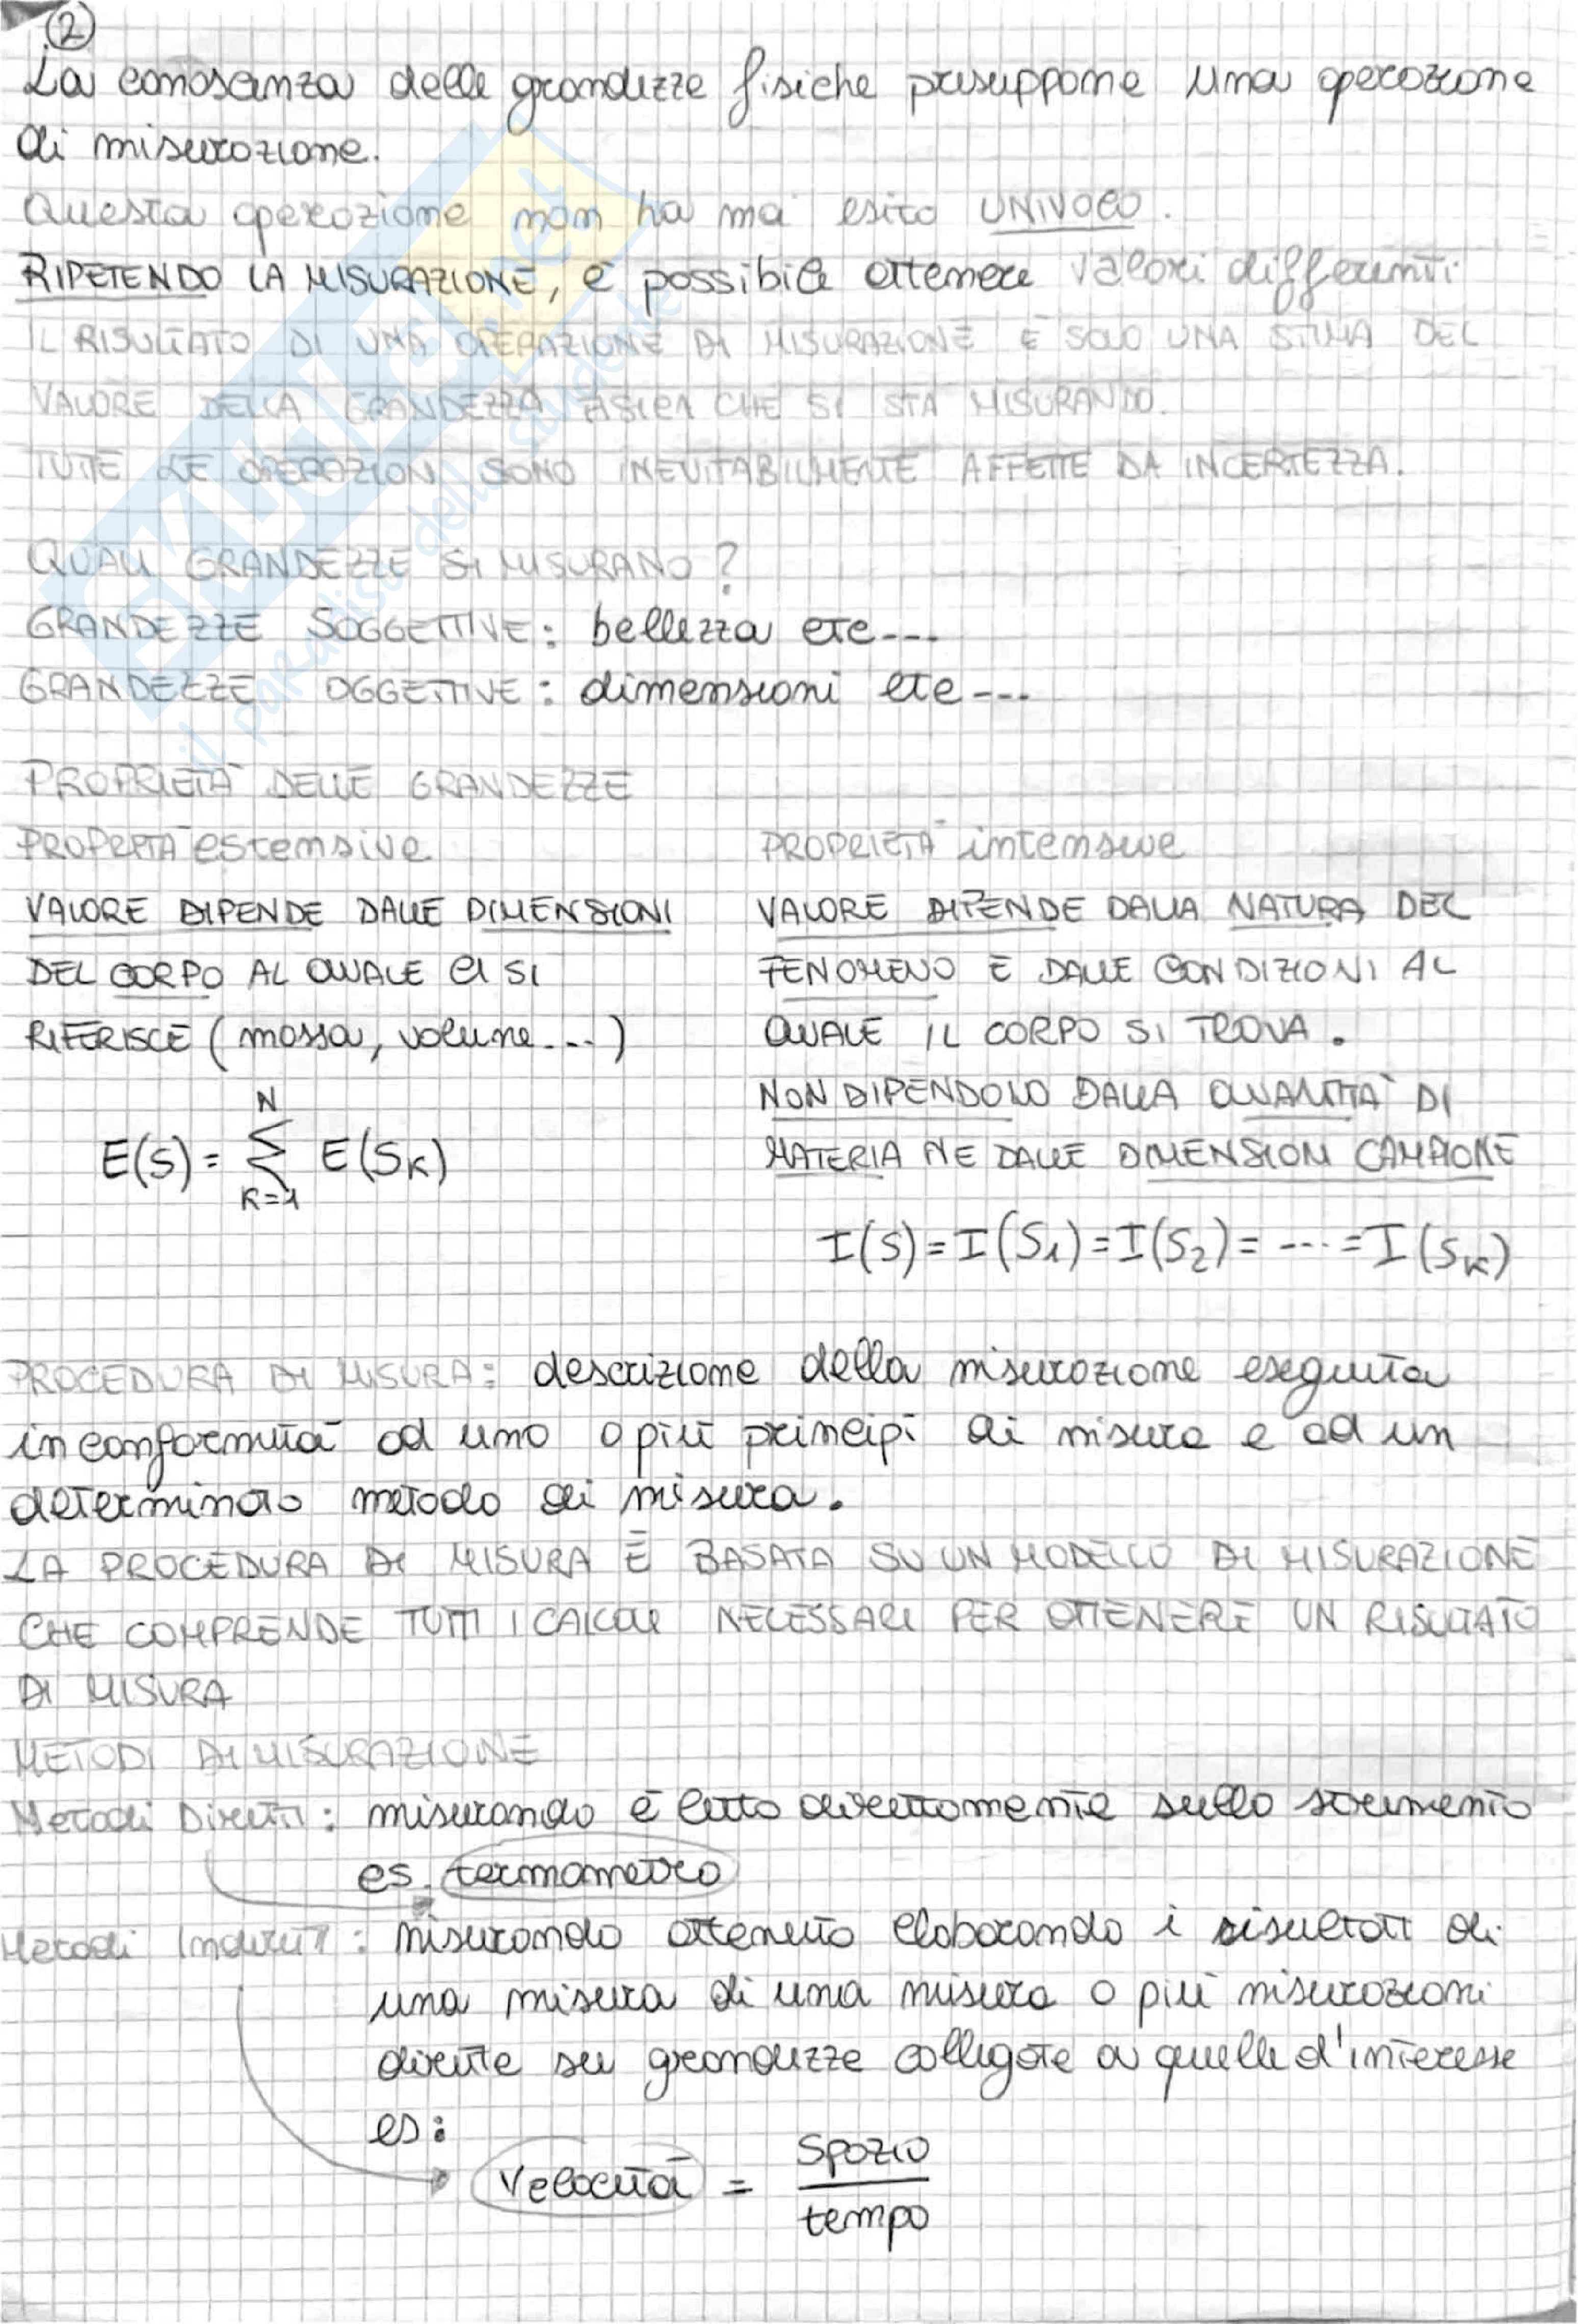 2
La conoscenza delle grandezze fisiche presuppone una operazione
di misurazione.
Questa operazione non ha mai esito UNIVOCO.
RIPETENDO LA MISURAZIONE, è possibile ottenere valori differenti
IL RISULTATO DI UNA OPERAZIONE DI MISURAZIONE È SOLO UNA STIMA DEL
VALORE DELLA GRANDEZZA FISICA CHE SI STA MISURANDO.
TUTTE LE OPERAZIONI SONO INEVITABILMENTE AFFETTE DA INCERTEZZA.
QUALI GRANDEZZE SI MISURANO?
GRANDEZZE SOGGETTIVE: bellezza etc---
GRANDEZZE OGGETTIVE: dimensioni etc---
PROPRIETÀ DELLE GRANDEZZE
PROPRIETÀ estensive
VALORE DIPENDE DALLE DIMENSIONI
DEL CORPO AL QUALE CI SI
RIFERISCE (massa, volume...)
E(S) = N Σ K=1 E(SK)
PROPRIETÀ intensive
VALORE DIPENDE DALLA NATURA DEL
FENOMENO E DALLE CONDIZIONI AL
QUALE IL CORPO SI TROVA.
NON DIPENDONO DALLA QUANTITÀ DI
MATERIA NE DALLE DIMENSIONI CAMPIONE
I(S) = I(S1) = I(S2) = ---- = I(SK)
PROCEDURA DI MISURA: descrizione della misurazione eseguita
in conformità ad uno o più principi di misura e ad un
determinato metodo di misura.
LA PROCEDURA DI MISURA È BASATA SU UN MODELLO DI MISURAZIONE
CHE COMPRENDE TUTTI I CALCOLI NECESSARI PER OTTENERE UN RISULTATO
DI MISURA
METODI DI MISURAZIONE
Metodi Diretti: misurando è letto direttamente sullo strumento
es. termometro
Metodi Indiretti: misurando ottenuto elaborando i risultati di
una misura di una misura o più misurazioni
dirette su grandezze collegate a quelle d'interesse
es:
Velocità = spazio / tempo
SKUOLA.net
il paradiso dello studente